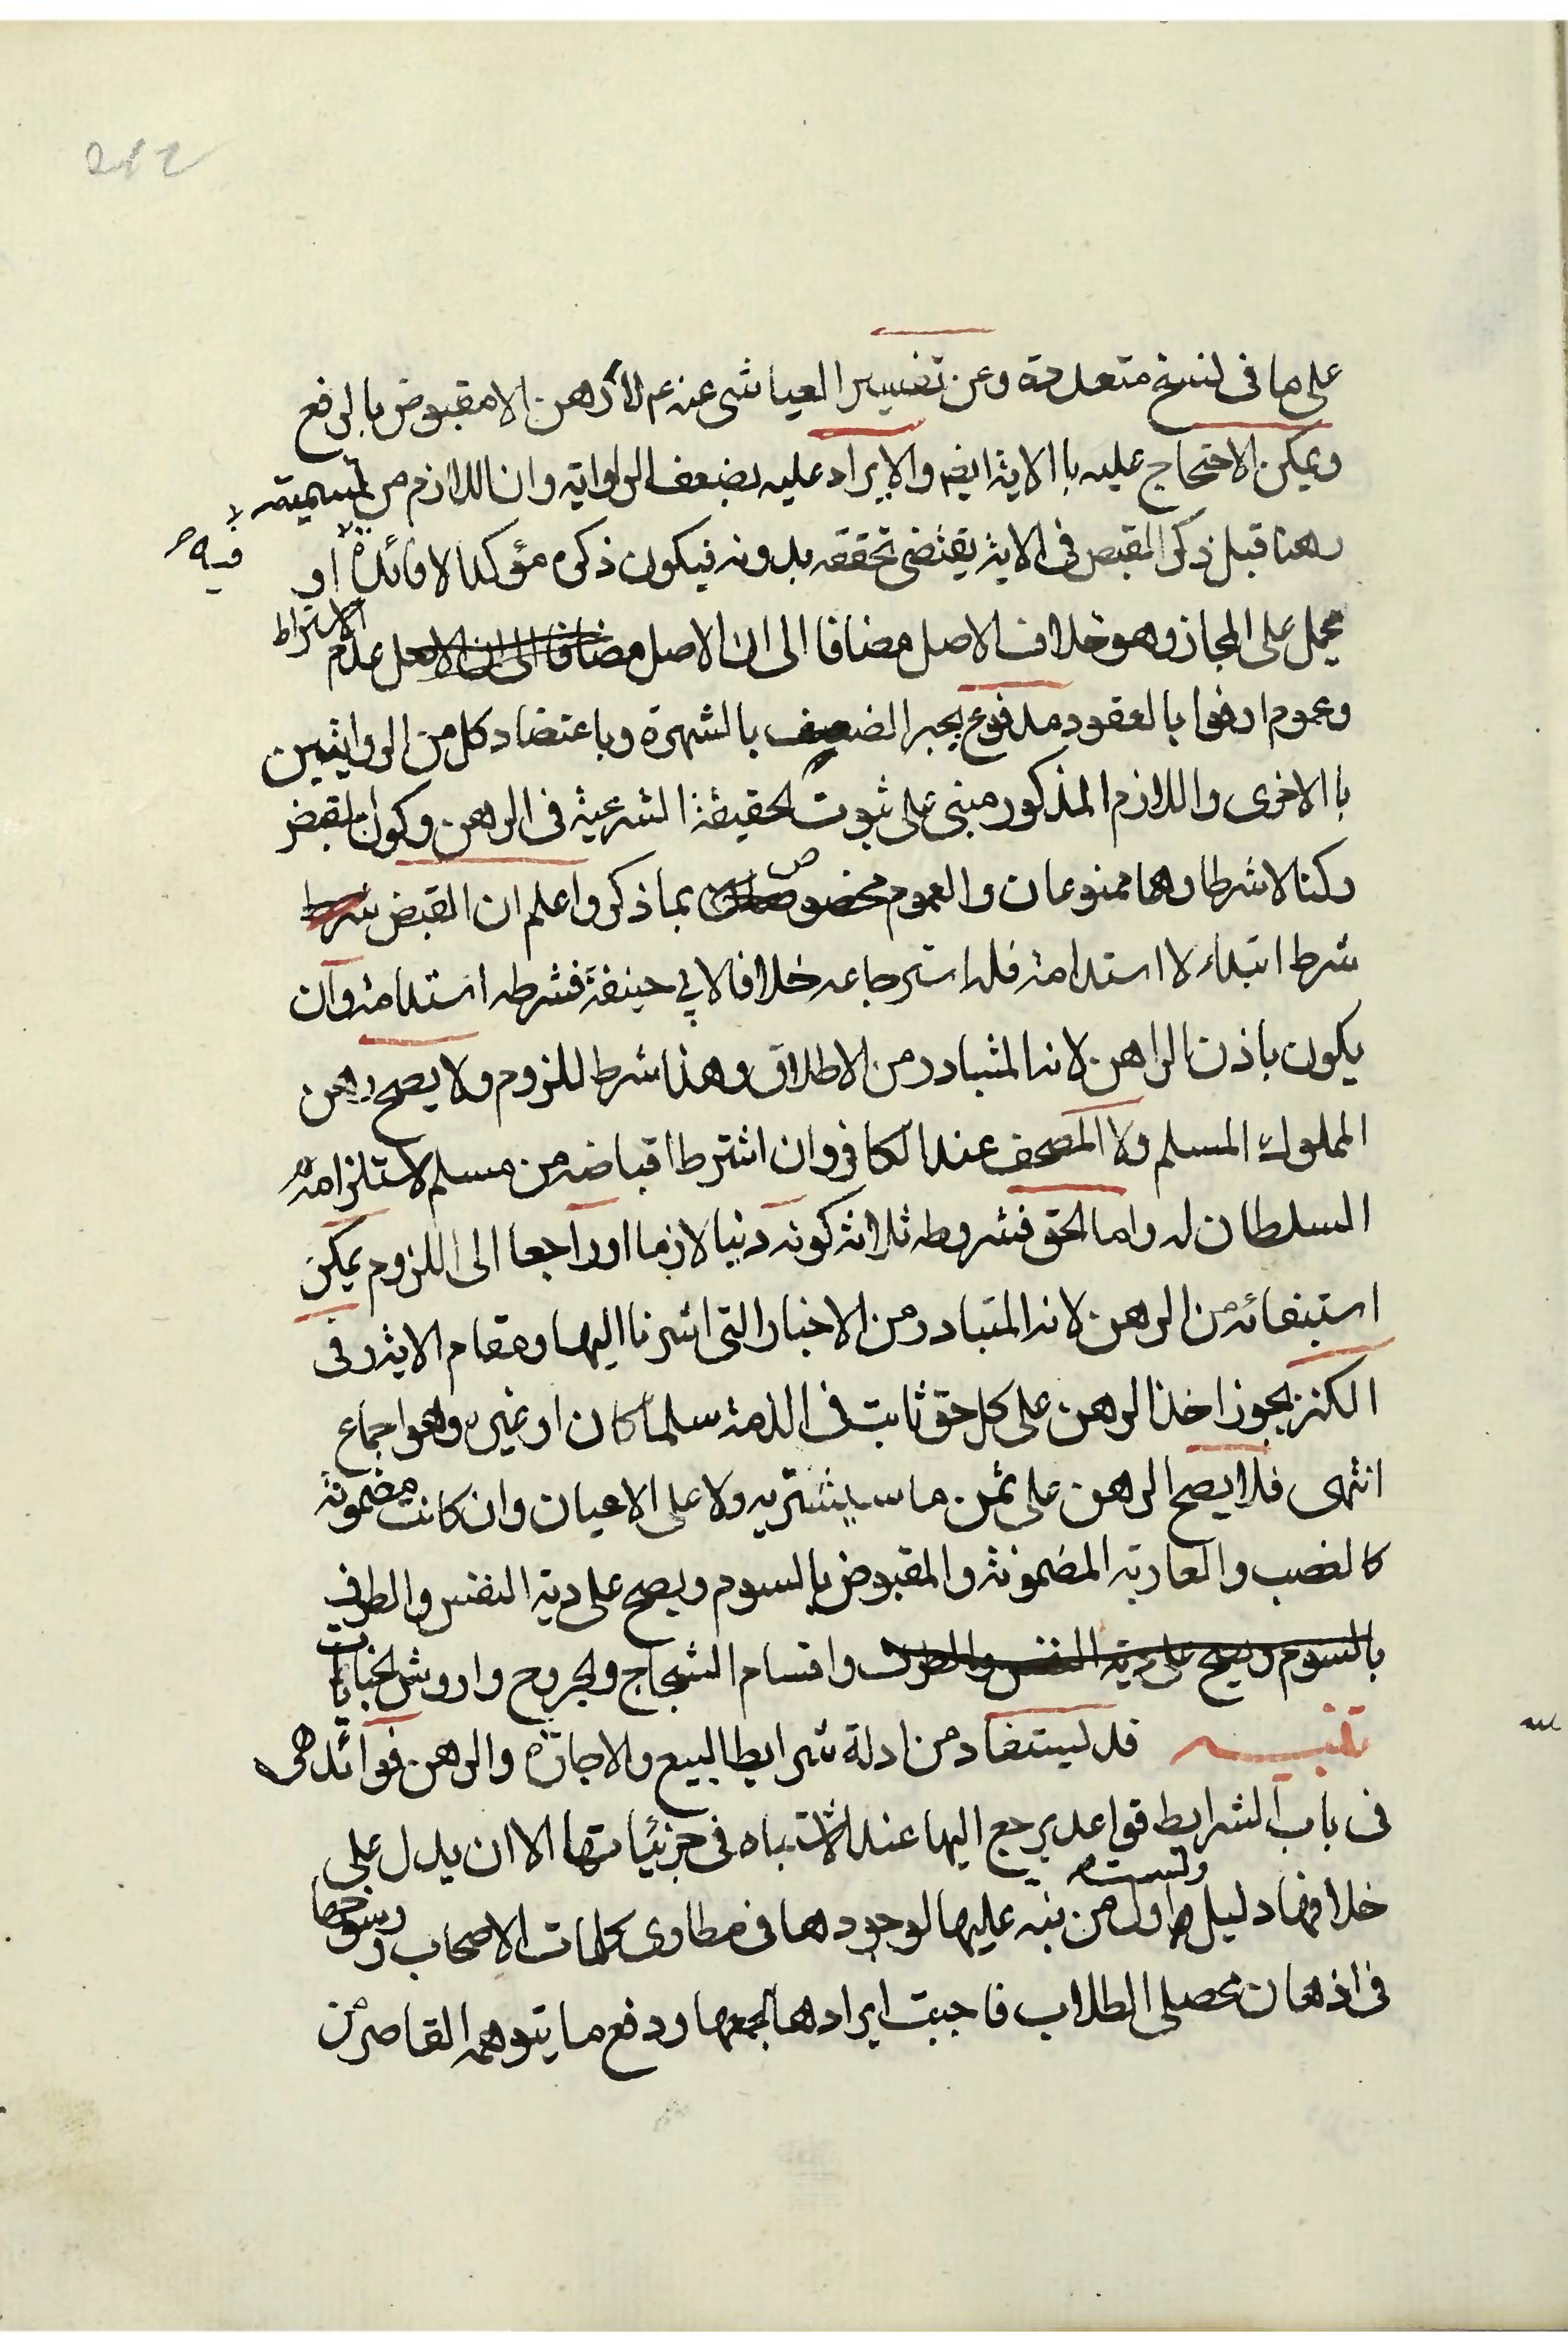 على ما فى نسخ متعددة وعن تفسير العياشى عنه عم لا رهن الا مقبوض بالرفع
ويمكن الاحتجاج عليه با الاية ايضا والايراد عليه بضعف الرواية وان اللازم من تسميته
رهنا قبل ذكر القبض فى الاية يقتضى تحققه بدونه فيكون ذكره مؤكدا لا فائدة او
فيه
يحمل على المجاز وهو خلاف الاصل مضافا الى ان الاصل مضافا الى ان الاصل عدم الاشتراط
وعموم اوفوا بالعقود مدفوع بجبر الضعيف بالشهرة وباعتضاد كل من الروايتين
با الاخرى واللازم المذكور مبنى على ثبوت الحقيقة الشرعية فى الرهن وكون القبض
ركنا لا شرطا وهما ممنوعان والعموم مخصوص بما ذكر واعلم ان القبض شرط
شرط ابتداء لا استدامة فله استرجاعه خلافا لابي حنيفة فشرطه استدامة وان
يكون باذن الراهن لانه المتبادر من الاطلاق وهذا شرط للزوم ولا يصح رهن
المملوك المسلم ولا المصحف عند الكافر وان اشترط اقباضه من مسلم لاستلزامه
السلطان له واما الحق فشروطه ثلاثة كونه دينا لازما او راجعا الى اللزوم يمكن
استيفائه من الرهن لانه المتبادر من الاخبار التى اشرنا اليها ومقام الاية وفى
الكنز يجوز اخذ الرهن على كل حق ثابت فى الذمة سلما كان او غيره وهو اجماع
انتهى فلا يصح الرهن على ثمن ما سيشتريه ولا على الاعيان وان كانت مضمونة
كالغصب والعارية المضمونة والمقبوض بالسوم ويصح على دية النفس والطرف
بالسوم ويصح على دية النفس والطرف واقسام الشجاج والجروح واروش الجنايات
تنبيه قد يستفاد من ادلة شرايط البيع والاجارة والرهن فوائد هى
فى باب الشرايط قواعد يرجع اليها عند الاشتباه فى جزئياتها الا ان يدل على
خلافها دليل ولست اول من نبه عليها لوجودها فى مطاوى كلمات الاصحاب ورسوخها
فى اذهان محصلى الطلاب فاحببت ايرادها لجمعها ودفع ما يتوهمه القاصر من